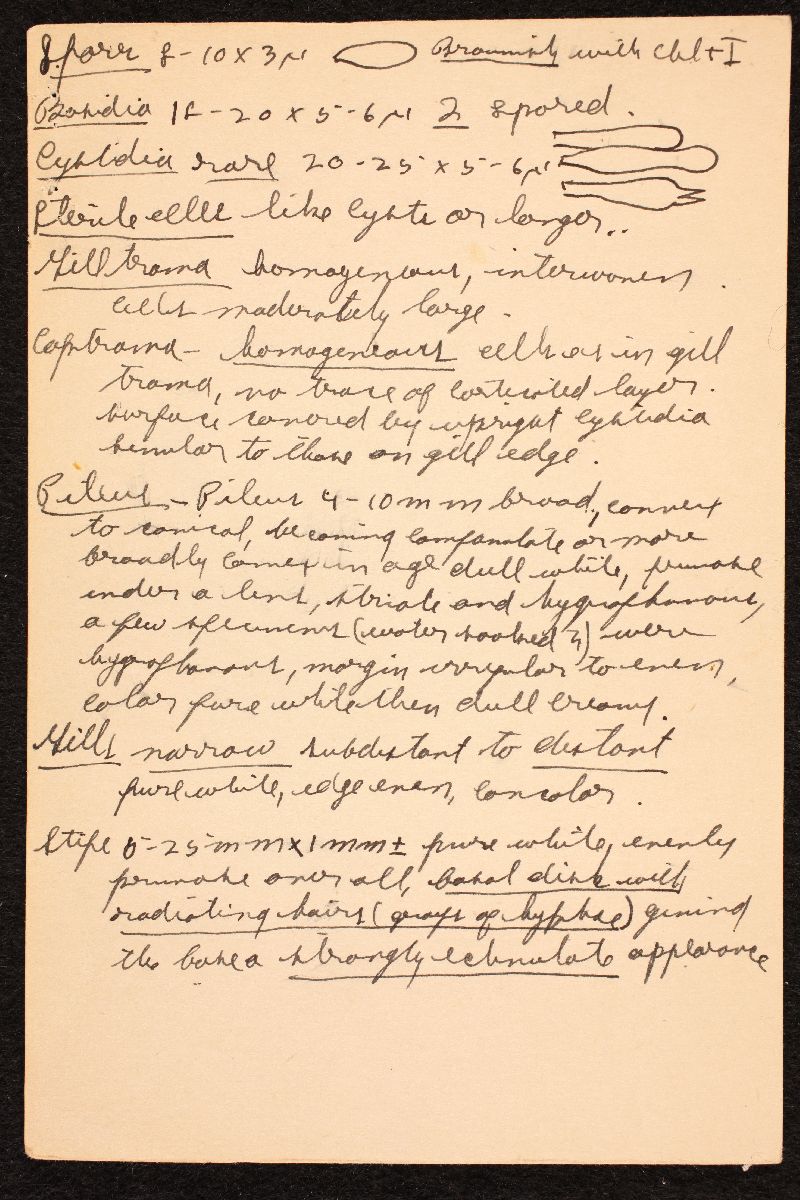 Spores 8-10 x 3μ Brownish with Chl + I
Basidia 18-20 x 5-6μ 2 spored.
Cystidia rare 20-25 x 5-6μ
Sterile cells like cysts or larger..
Gill trama homogeneous, interwoven.
cells moderately large.
Cap trama- homogeneous cells as in gill
trama, no trace of corticated layer.
surface covered by upright cystidia
similar to those on gill edge.
Pileus - Pileus 4-10 mm broad, convex
to conical, becoming campanulate or more
broadly convex in age dull white, pruinose
under a lens, striate and hygrophanous,
a few specimens (water soaked ?) were
hygrophanous, margin irregular to even,
color pure white then dull creamy.
Gills narrow subdistant to distant
pure white, edge even, concolor.
Stipe 5-25 mm x 1 mm ± pure white, evenly
pruinose over all, basal disk with
radiating hairs (groups of hyphae) giving
the base a strongly echinulate appearance